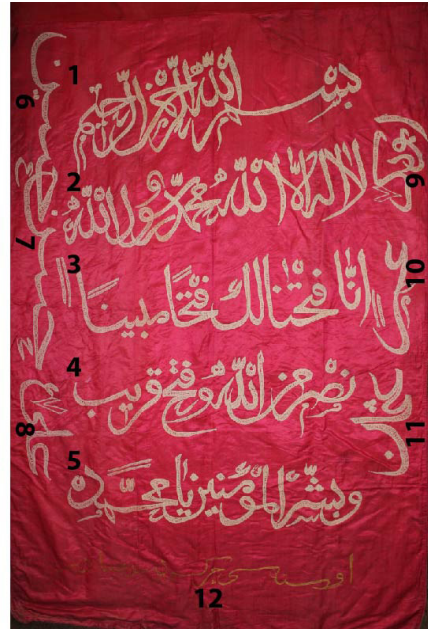 1 بسم الله الرحمن الرحيم
2 لا اله الا الله محمد رسول الله
3 انا فتحنا لك فتحا مبينا
4 نصر من الله وفتح قريب
5 وبشر المؤمنين يا محمد
6
7
8 على
9
10 عمر
11 عثمان
12